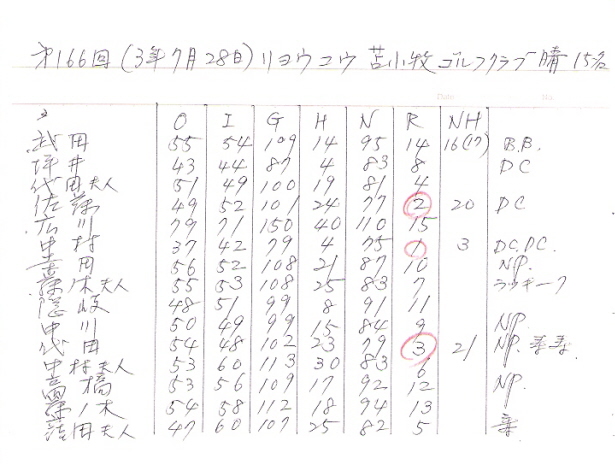 第166回 (3年7月28日) リヨウコウ 苫小牧ゴルフクラブ 晴 15名
O I G H N R NH
武田 55 54 109 14 95 14 16(17) B.B.
坪井 43 44 87 4 83 8 DC
代田夫人 51 49 100 19 81 4
佐藤 49 52 101 24 77 2 20 DC
広川 79 71 150 40 110 15
中村 37 42 79 4 75 1 3 DC, DC.
田 56 52 108 21 87 10 NP.
木夫人 55 53 108 25 83 7 ラッキー7
隠岐 48 51 99 8 91 11
中川 50 49 99 15 84 9 NP
代田 54 48 102 23 79 3 21 NP.
中村夫人 53 60 113 30 83 6
高橋 53 56 109 17 92 12 NP.
木 54 58 112 18 94 13
田夫人 47 60 107 25 82 5